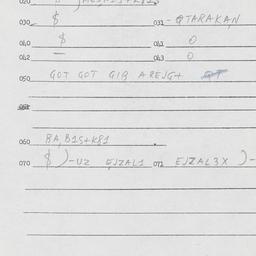 020
030 $ 031 - @TARAKAN
040 $ 041 0
042 — 043 0
050 GOT GOT GIB AREJG+
060 BA, B1S+K81
070 $ )-UZ EJZAL1 071 EJZAL3X )-